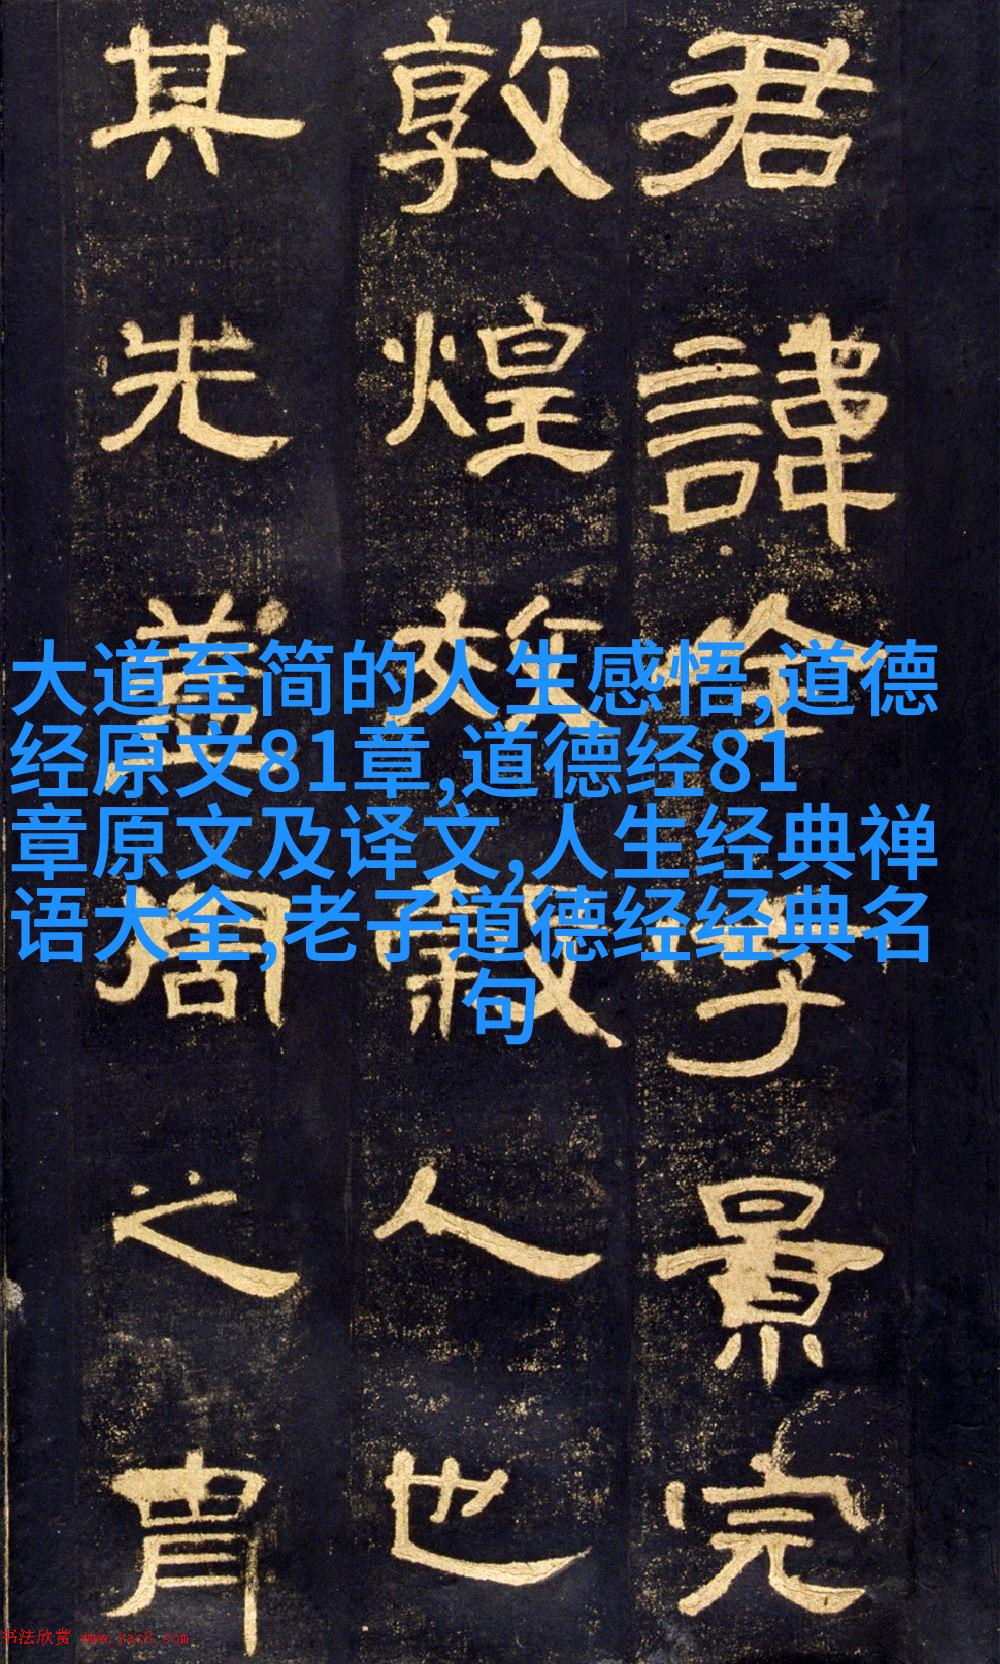 君諱全字景完
敦煌效穀人也
其先蓋周之胄
大道至简的人生感悟,道德
经原文81章,道德经81
章原文及译文,人生经典禅
语大全,老子道德经经典名
句
书法欣赏 www.yac8.com